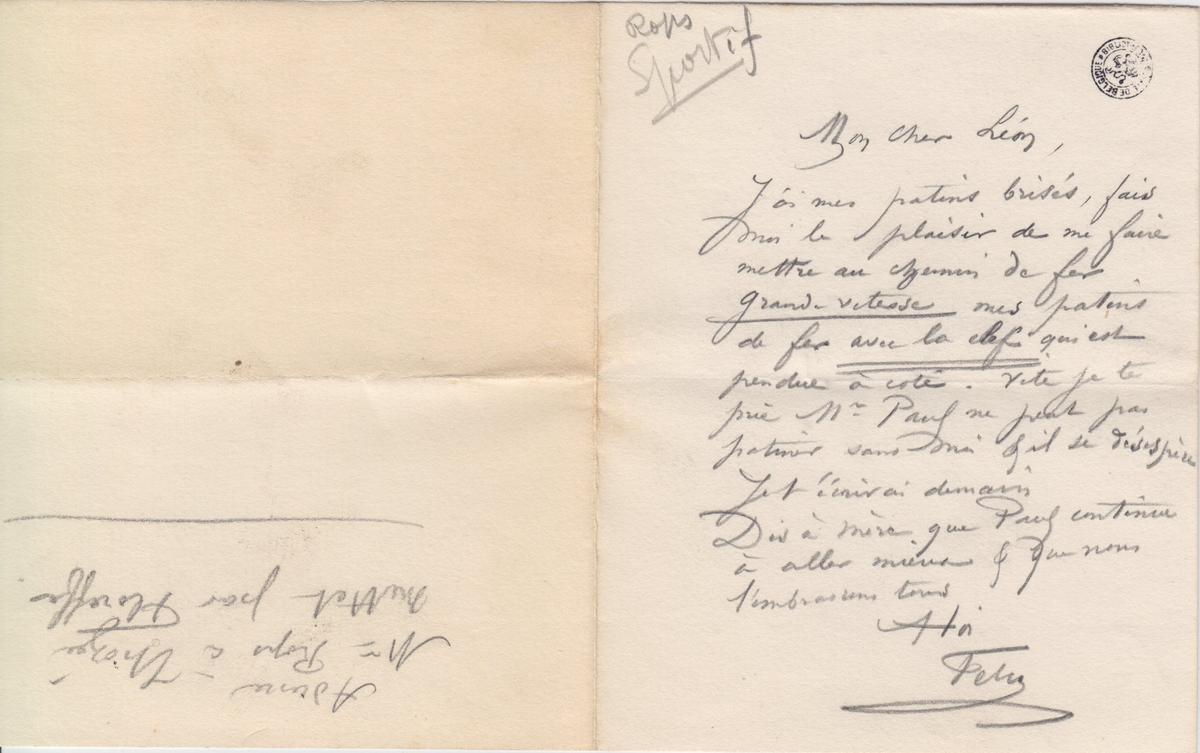 Rops
Sportif
BIBLIOTH DE BELGIQUE
Mon cher Léon,
J'ai mes patins brisés, fais
moi le plaisir de me faire
mettre au chemin de fer
grande vitesse mes patins
de fer avec la clef qui est
pendue à coté. Vite je te
prie Mr Paul ne peut pas
patiner sans moi & il se désespère
Je t'écrirai demain
Dis à mère que Paul continue
à aller mieux & que nous
l'embrassons tous
A toi
Felix
Adresse
Mr Rops à Thozé
Mettet par Floreffe